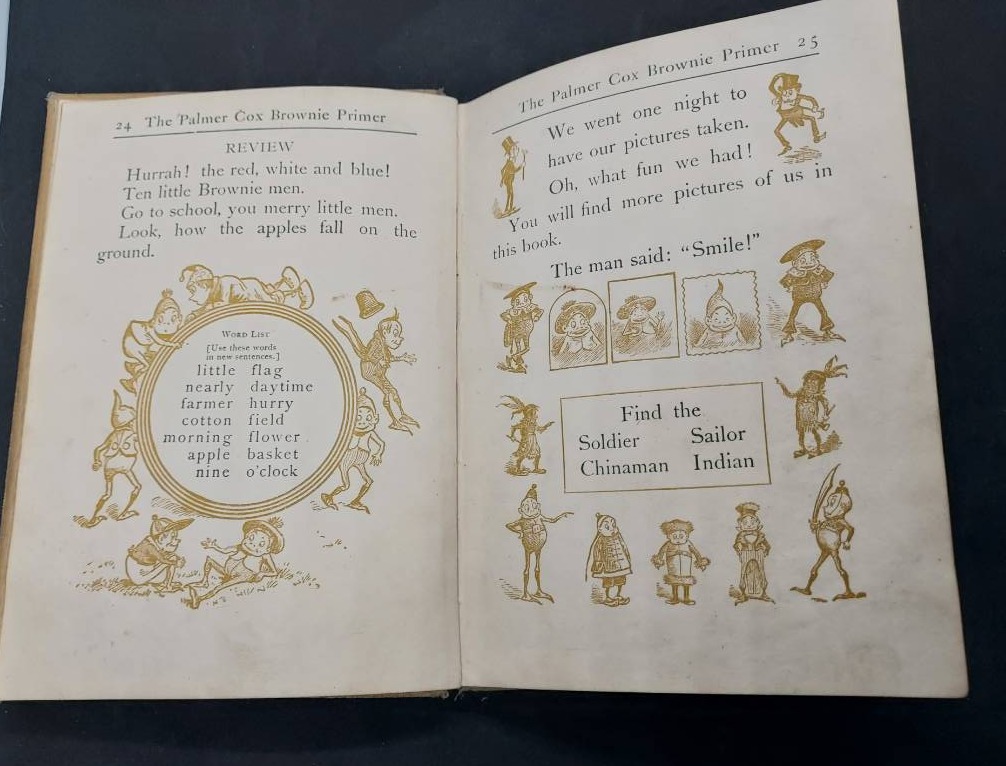 24 The Palmer Cox Brownie Primer
REVIEW
Hurrah! the red, white and blue!
Ten little Brownie men.
Go to school, you merry little men.
Look, how the apples fall on the
ground.
WORD LIST
[Use these words
in new sentences.]
little flag
nearly daytime
farmer hurry
cotton field
morning flower
apple basket
nine o'clock
The Palmer Cox Brownie Primer 25
We went one night to
have our pictures taken.
Oh, what fun we had!
You will find more pictures of us in
this book.
The man said: "Smile!"
Find the
Soldier Sailor
Chinaman Indian